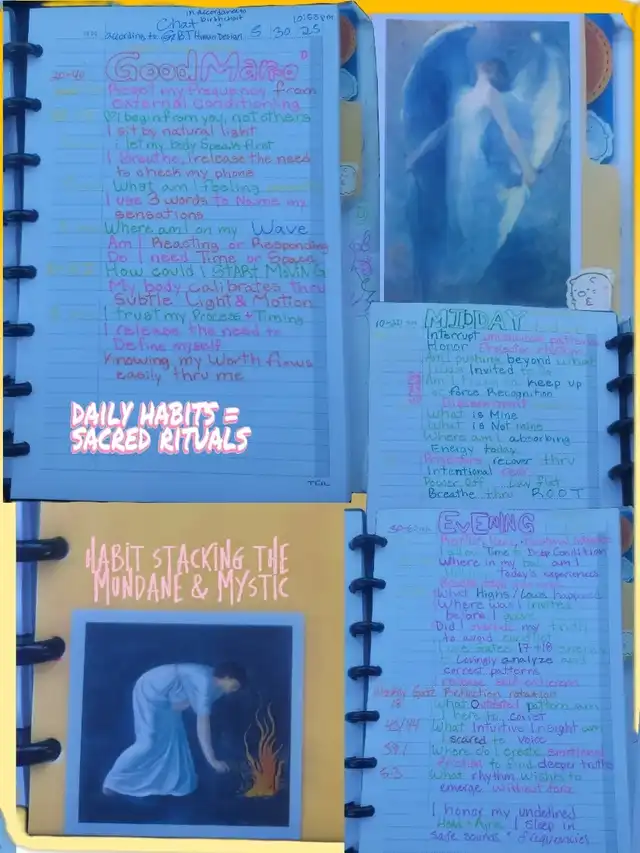 in accordance to
birthchart
+
10:53pm
Chat
according to GBT Human Design 5 30 25
20-40
Good Mami
Reset my Frequency from
external conditioning
I begin from you, not others
I sit by natural light
I let my body speak first
I Breathe, I release the need
to check my phone
What am I feeling
I use 3 words to Name my
sensations
Where am I on my Wave
Am I Reacting or Responding
Do I need Time or Space
How could I START MOVING
My body calibrates thru
subtle Light & Motion
I trust my Process + Timing
I release the need to
Define myself
Knowing my Worth flows
easily thru me
DAILY HABITS =
SACRED RITUALS
MIDDAY
Interrupt
Honor
Am I pushing beyond what
I was Invited to
Am I trying to keep up
or force Recognition
What is Mine
What is Not mine
Where am I absorbing
Energy today
recover thru
Intentional
Power Off Lay Flat
Breathe thru ROOT
HABIT STACKING THE
MUNDANE & MYSTIC
EVENING
Time to Deep Condition
Where in my am I
today's experiences
What Highs/Lows happened
Where was I invited
before I
Did I my truth
to avoid conflict
17+18
to Lovingly analyze and
correct patterns
release self criticism
Gate Reflection rotation
18 What Outdated pattern am
I here to correct
43/44 What Intuitive Insight am
I scared to voice
Where do I create emotional
to find deeper truths
53 What rhythm wishes to
emerge without force
I honor my undefined
Head + Ajna I Sleep in
safe sounds + frequencies